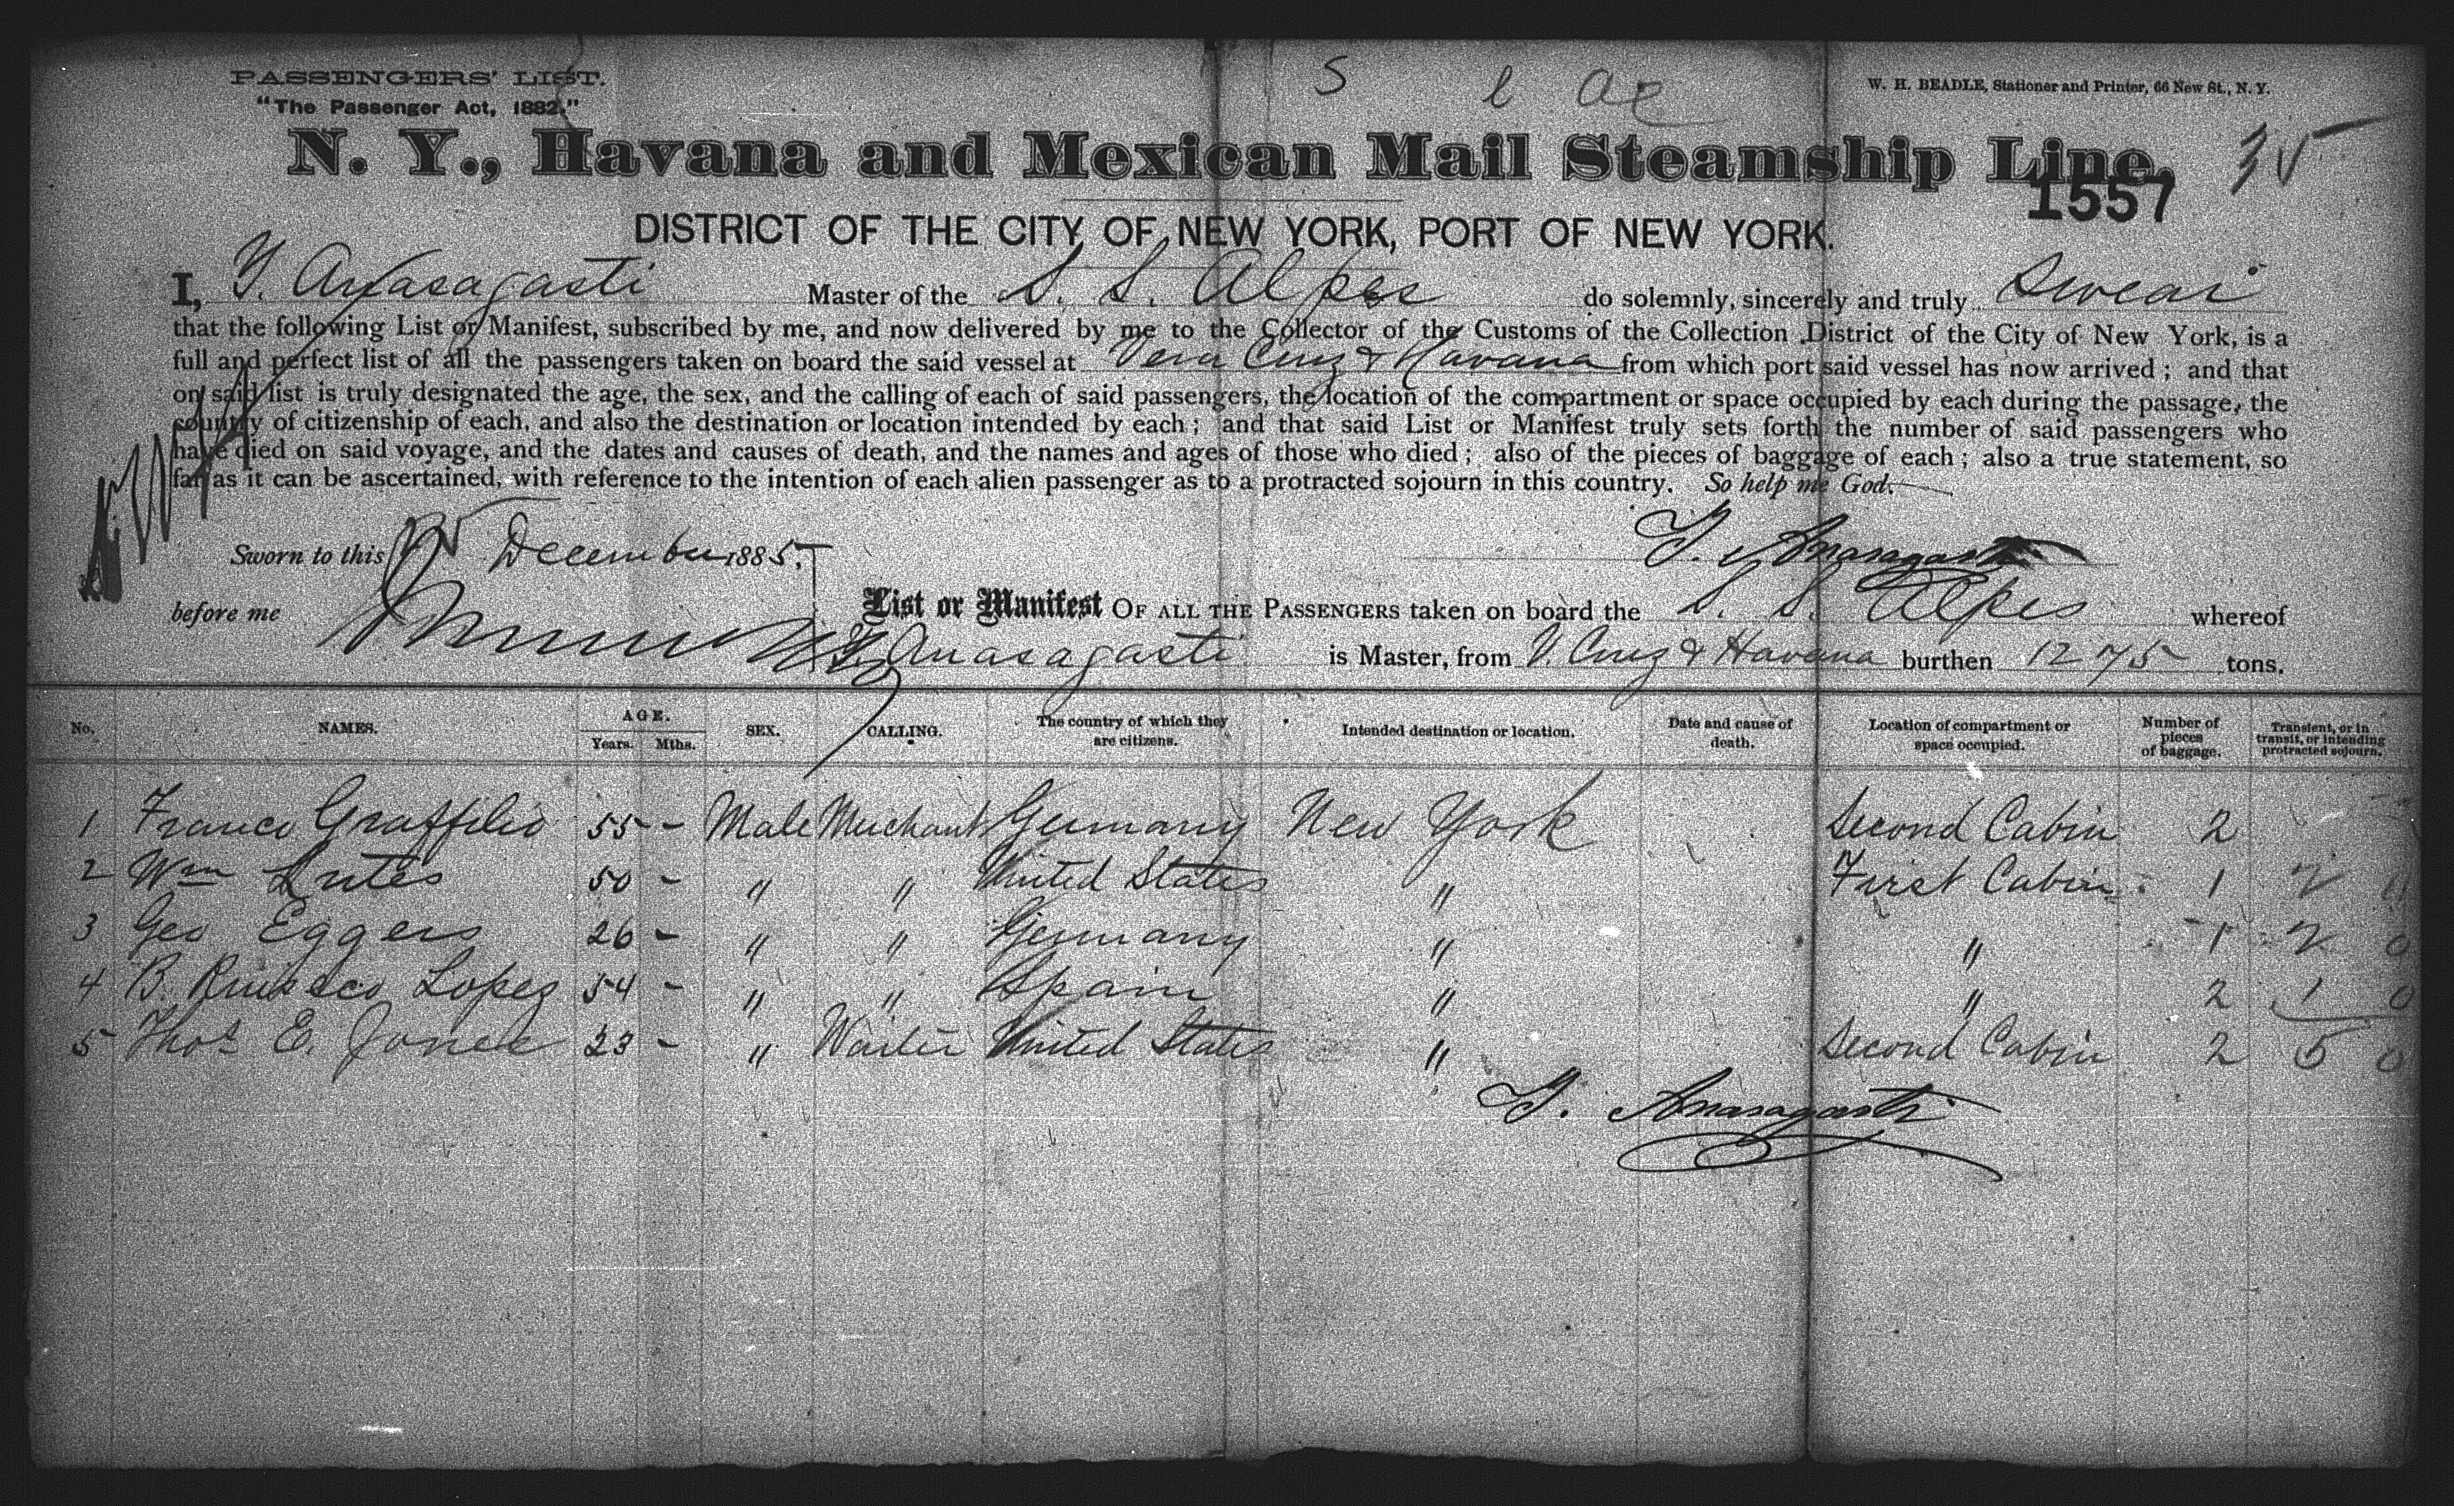 PASSENGERS' LIST.
"The Passenger Act, 1882."
S l
W. H. BEADLE, Stationer and Printer, 66 New St., N. Y.
N. Y., Havana and Mexican Mail Steamship Line.
1557
DISTRICT OF THE CITY OF NEW YORK, PORT OF NEW YORK.
I, Y. Anasagasti Master of the S. S. Alpes do solemnly, sincerely and truly Swear
that the following List or Manifest, subscribed by me, and now delivered by me to the Collector of the Customs of the Collection District of the City of New York, is a
full and perfect list of all the passengers taken on board the said vessel at Vera Cruz & Havana from which port said vessel has now arrived; and that
on said list is truly designated the age, the sex, and the calling of each of said passengers, the location of the compartment or space occupied by each during the passage, the
country of citizenship of each, and also the destination or location intended by each; and that said List or Manifest truly sets forth the number of said passengers who
have died on said voyage, and the dates and causes of death, and the names and ages of those who died; also of the pieces of baggage of each; also a true statement, so
far as it can be ascertained, with reference to the intention of each alien passenger as to a protracted sojourn in this country. So help me God.
Sworn to this December 1885.
Y. Anasagasti
before me
List or Manifest OF ALL THE PASSENGERS taken on board the S. S. Alpes whereof
Y. Anasagasti is Master, from V. Cruz & Havana burthen 1275 tons.
No. NAMES. AGE. Years. Mths. SEX. CALLING. The country of which they are citizens. Intended destination or location. Date and cause of death. Location of compartment or space occupied. Number of pieces of baggage. Transient, or in transit, or intending protracted sojourn.
1 Franco Graffilio 55 - Male Merchant Germany New York Second Cabin 2
2 Wm Lutes 50 - " " United States " First Cabin 1 2 0
3 Geo Eggers 26 - " " Germany " " 1 2 0
4 B. Lopez 54 - " " Spain " " 2 1 0
5 Thos E. Jones 23 - " Waiter United States " Second Cabin 2 5 0
Y. Anasagasti